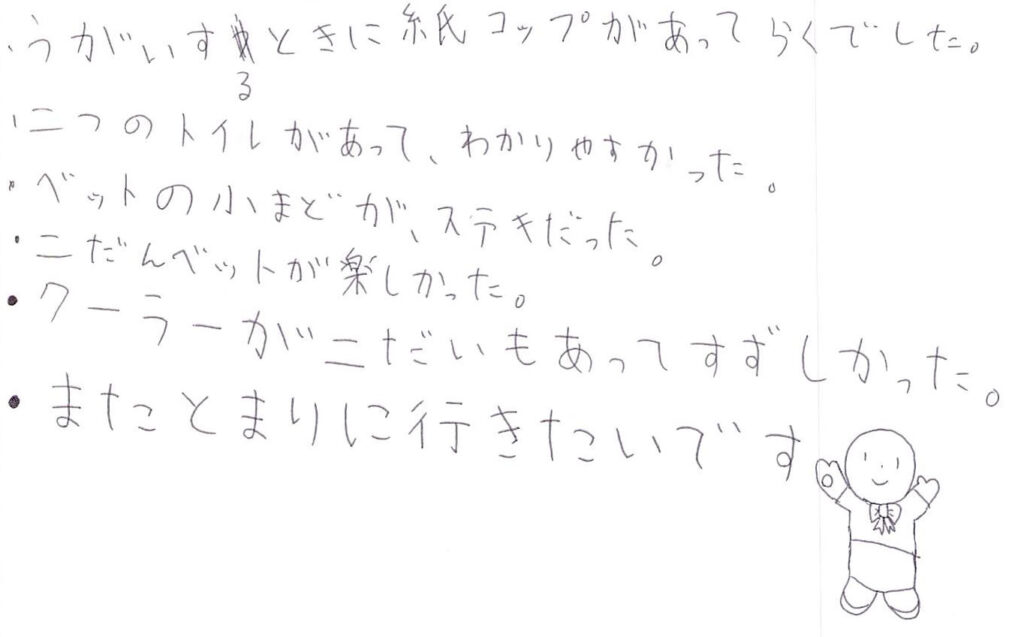 ・うがいするときに紙コップがあってらくでした。
・二つのトイレがあって、わかりやすかった。
・ベットの小まどが、ステキだった。
・二だんベットが楽しかった。
・クーラーが二だいもあってすずしかった。
・またとまりに行きたいです。